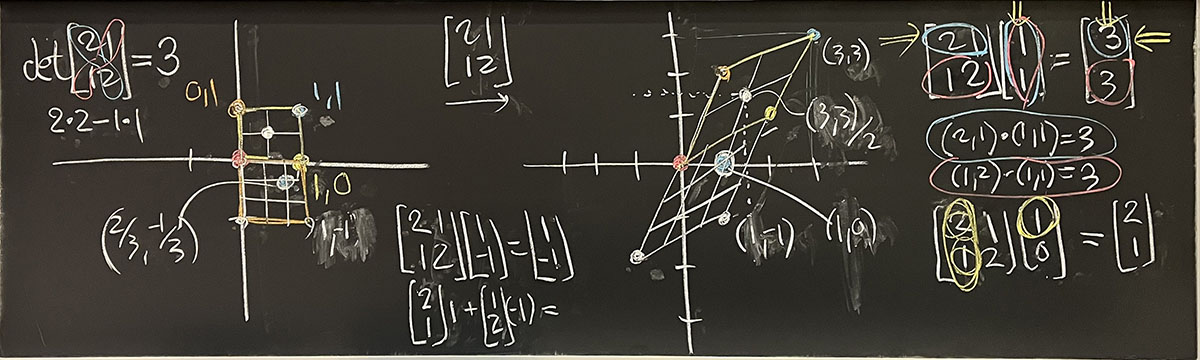 det [2 1
1 2] = 3
2·2-1·1
0,1
1,1
1,0
1,-1
(2/3, -1/3)
[2 1
1 2]
→
[2 1
1 2] [1
-1] = [1
-1]
[2
1] 1 + [1
2] (-1) =
(3,3)
(3,3)/2
(1,-1)
(1,0)
[2 1
1 2] [1
1] = [3
3]
(2,1)·(1,1)=3
(1,2)·(1,1)=3
[2 1
1 2] [1
0] = [2
1]